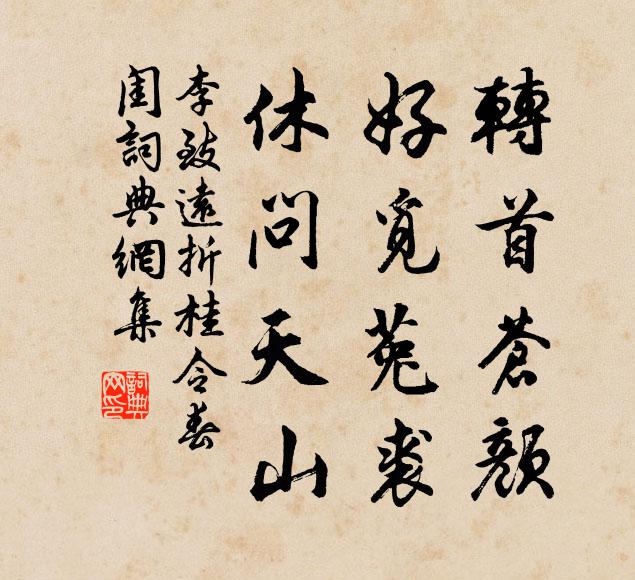 轉首蒼顏
好覓菟裘
休問天山
李致遠折桂令春
閨詞典網集
詞典網印